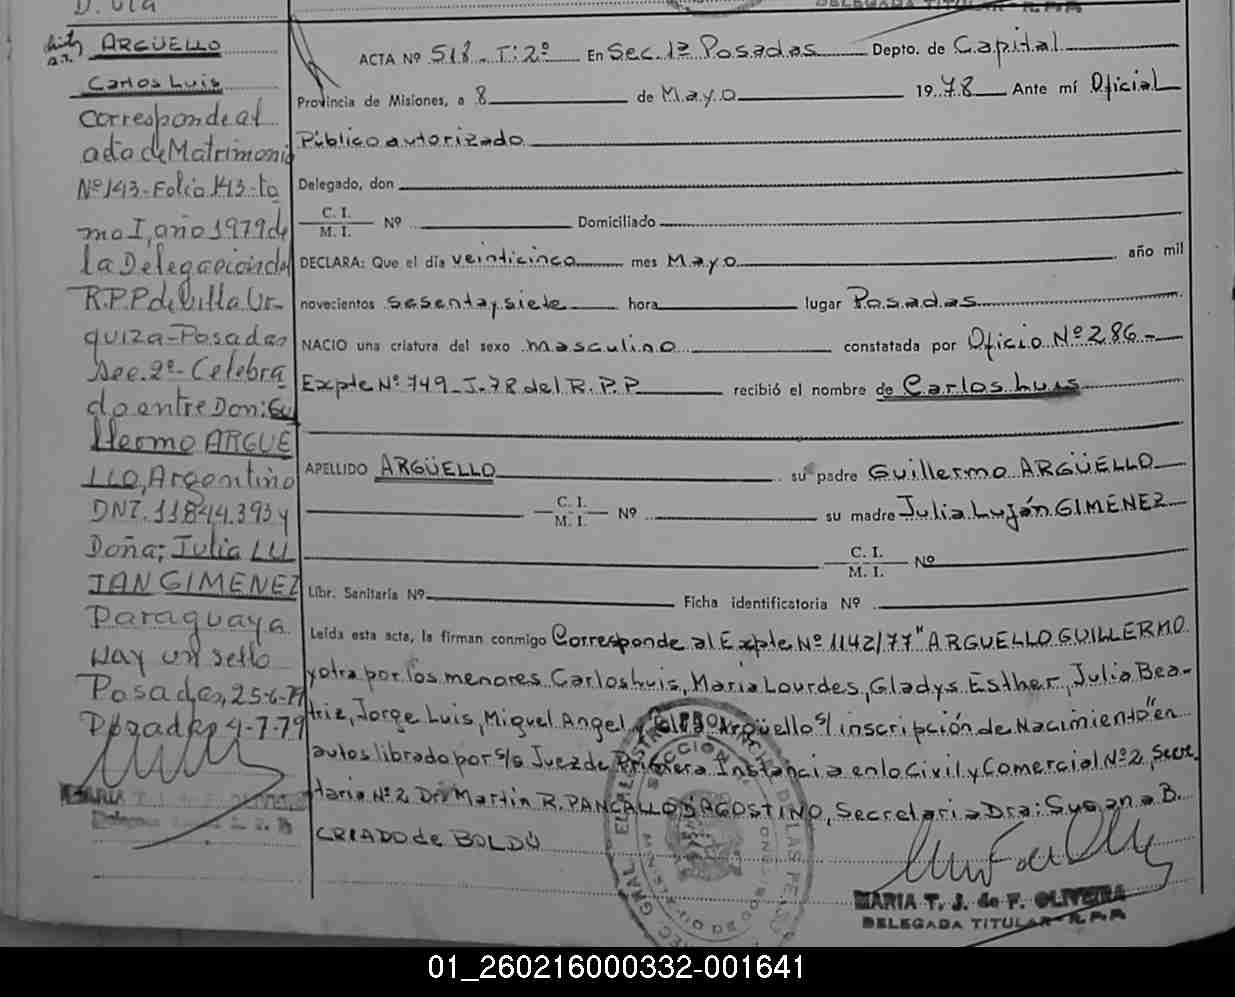 D. Ola
ARGÜELLO
Carlos Luis
Corresponde al
acta de Matrimonio
Nº 143-Folio 143-to
mo I, año 1979 de
la Delegación del
R.P.P de Villa Ur-
quiza-Posadas
Sec. 2º- Celebra
do entre Don: Gui
llermo ARGUE
LLO, Argentino
DNI. 11844.393 y
Doña; Julia LU
JAN GIMENEZ
Paraguaya
Hay un sello
Posadas, 25-6-79
Posadas 4-7-79
DELEGADA TITULAR - R.P.P.
ACTA Nº 518 - T: 2º En Sec. 1ª Posadas Depto. de Capital
Provincia de Misiones, a 8 de Mayo 1978 Ante mí Oficial
Público autorizado
Delegado, don
C. I.
M. I. Nº Domiciliado
DECLARA: Que el día veinticinco mes Mayo año mil
novecientos sesenta y siete hora lugar Posadas
NACIO una criatura del sexo masculino constatada por Oficio Nº 286-
Expte Nº 749-J-78 del R.P.P recibió el nombre de Carlos Luis
APELLIDO ARGÜELLO su padre Guillermo ARGÜELLO
C. I.
M. I. Nº su madre Julia Luján GIMENEZ
C. I.
M. I. Nº
Libr. Sanitaria Nº Ficha identificatoria Nº
Leída esta acta, la firman conmigo Corresponde al Expte Nº 1142/77 "ARGUELLO GUILLERMO
y otra por los menores Carlos Luis, Maria Lourdes, Gladys Esther, Julia Bea-
triz, Jorge Luis, Miguel Angel Argüello s/ inscripción de Nacimiento" en
autos librado por S/S Juez de Primera Instancia en lo Civil y Comercial Nº 2, Secre
taria Nº 2 Dr. Martin R. PANCALLO D'AGOSTINO, Secretaria Dra: Susana B.
CRIADO de BOLDÚ
MARIA T. J. de F. OLIVEIRA
DELEGADA TITULAR - R.P.P.
01_260216000332-001641